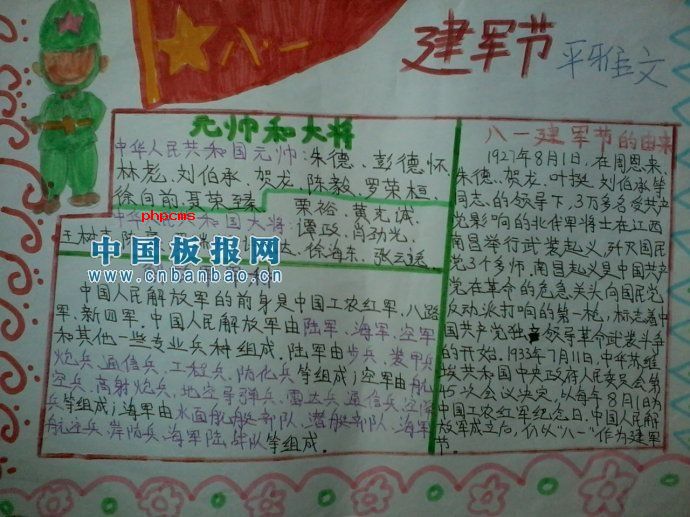 八一
建军节
平雅文
元帅和大将
中华人民共和国元帅:朱德、彭德怀
林彪、刘伯承、贺龙、陈毅、罗荣桓
徐向前、聂荣臻
phpcms
中华人民共和国大将
粟裕、黄克诚
谭政、肖劲光、
徐海东、张云逸
中国板报网
www.cnbanbao.cn
中国人民解放军的前身是中国工农红军、八路
军、新四军。中国人民解放军由陆军、海军、空军
和其他一些专业兵种组成。陆军由步兵、装甲兵
炮兵、通信兵、工程兵、防化兵等组成;空军由航
空兵、高射炮兵、地空导弹兵、雷达兵、通信兵、空降
兵等组成;海军由水面舰艇部队、潜艇部队、海军
航空兵、岸防兵、海军陆战队等组成。
八一建军节的由来
1927年8月1日,在周恩来、
朱德、贺龙、叶挺、刘伯承等
同志的领导下,3万多名受共产
党影响的北伐军将士在江西
南昌举行武装起义,歼灭国民
党3个多师。南昌起义是中国共产
党在革命的危急关头向国民党
反动派打响的第一枪,标志着中
国共产党独立领导革命武装斗争
的开始。1933年7月11日,中华苏维
埃共和国中央政府人民委员会第
15次会议决定,以每年8月1日为
中国工农红军纪念日。中国人民解
放军成立后,仍以“八一”作为建军
节。